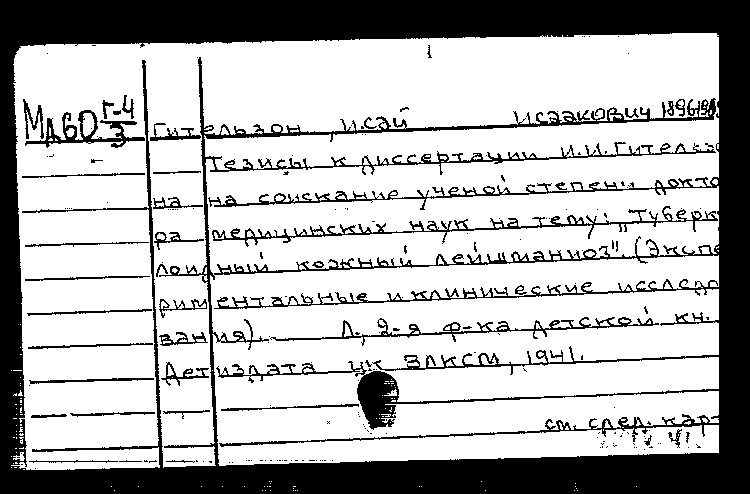 МА60 Г-4/3
Гительзон, Исай Исаакович 1896-
Тезисы к диссертации И.И.Гительзо
на на соискание ученой степени докто
ра медицинских наук на тему: „Туберку
лоидный кожный лейшманиоз". (Экспе
риментальные и клинические исследо
вания). Л., 2-я ф-ка детской кн.
Детиздата ЦК ВЛКСМ, 1941.
см. след. карт